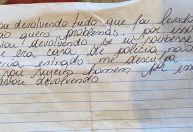 ou devolvendo tudo que foi levado
ão quero problemas.. por isso
tou devolvendo. se eu soubesse
e era casa de polícia não
eria entrado me desculpa
sou sujeito homem por isso
estou devolvendo.